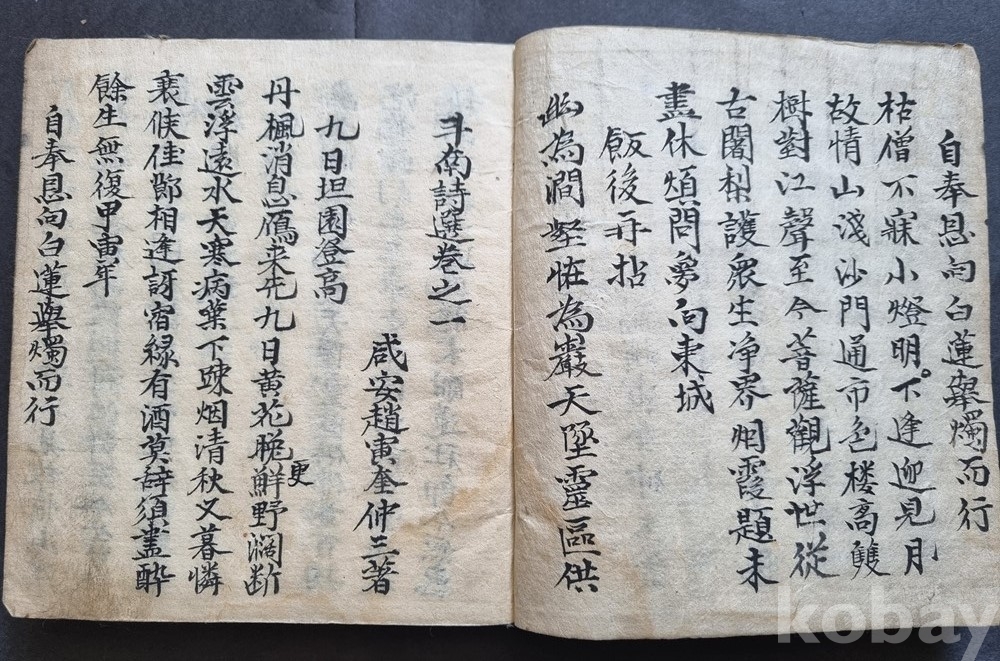 自奉恩向白蓮擧燭而行
枯僧不寐小燈明下逢迎見月
故情山淺沙門通市色楼高雙
樹對江聲至今菩薩觀浮世從
古闍梨護衆生净界烟霞題未
盡休煩問夢向東城
飯後再拈
幽為澗壑恠為巖天墜靈區供
斗南詩選卷之一
咸安趙寅奎仲三著
九日坦園登高
丹楓消息鴈来先九日黄花晚更鮮野濶断
雲浮遠水天寒病葉下踈烟清秋又暮憐
衰候佳節相逢訝宿緣有酒莫辞須盡酔
餘生無復甲寅年
自奉恩向白蓮擧燭而行
kobay